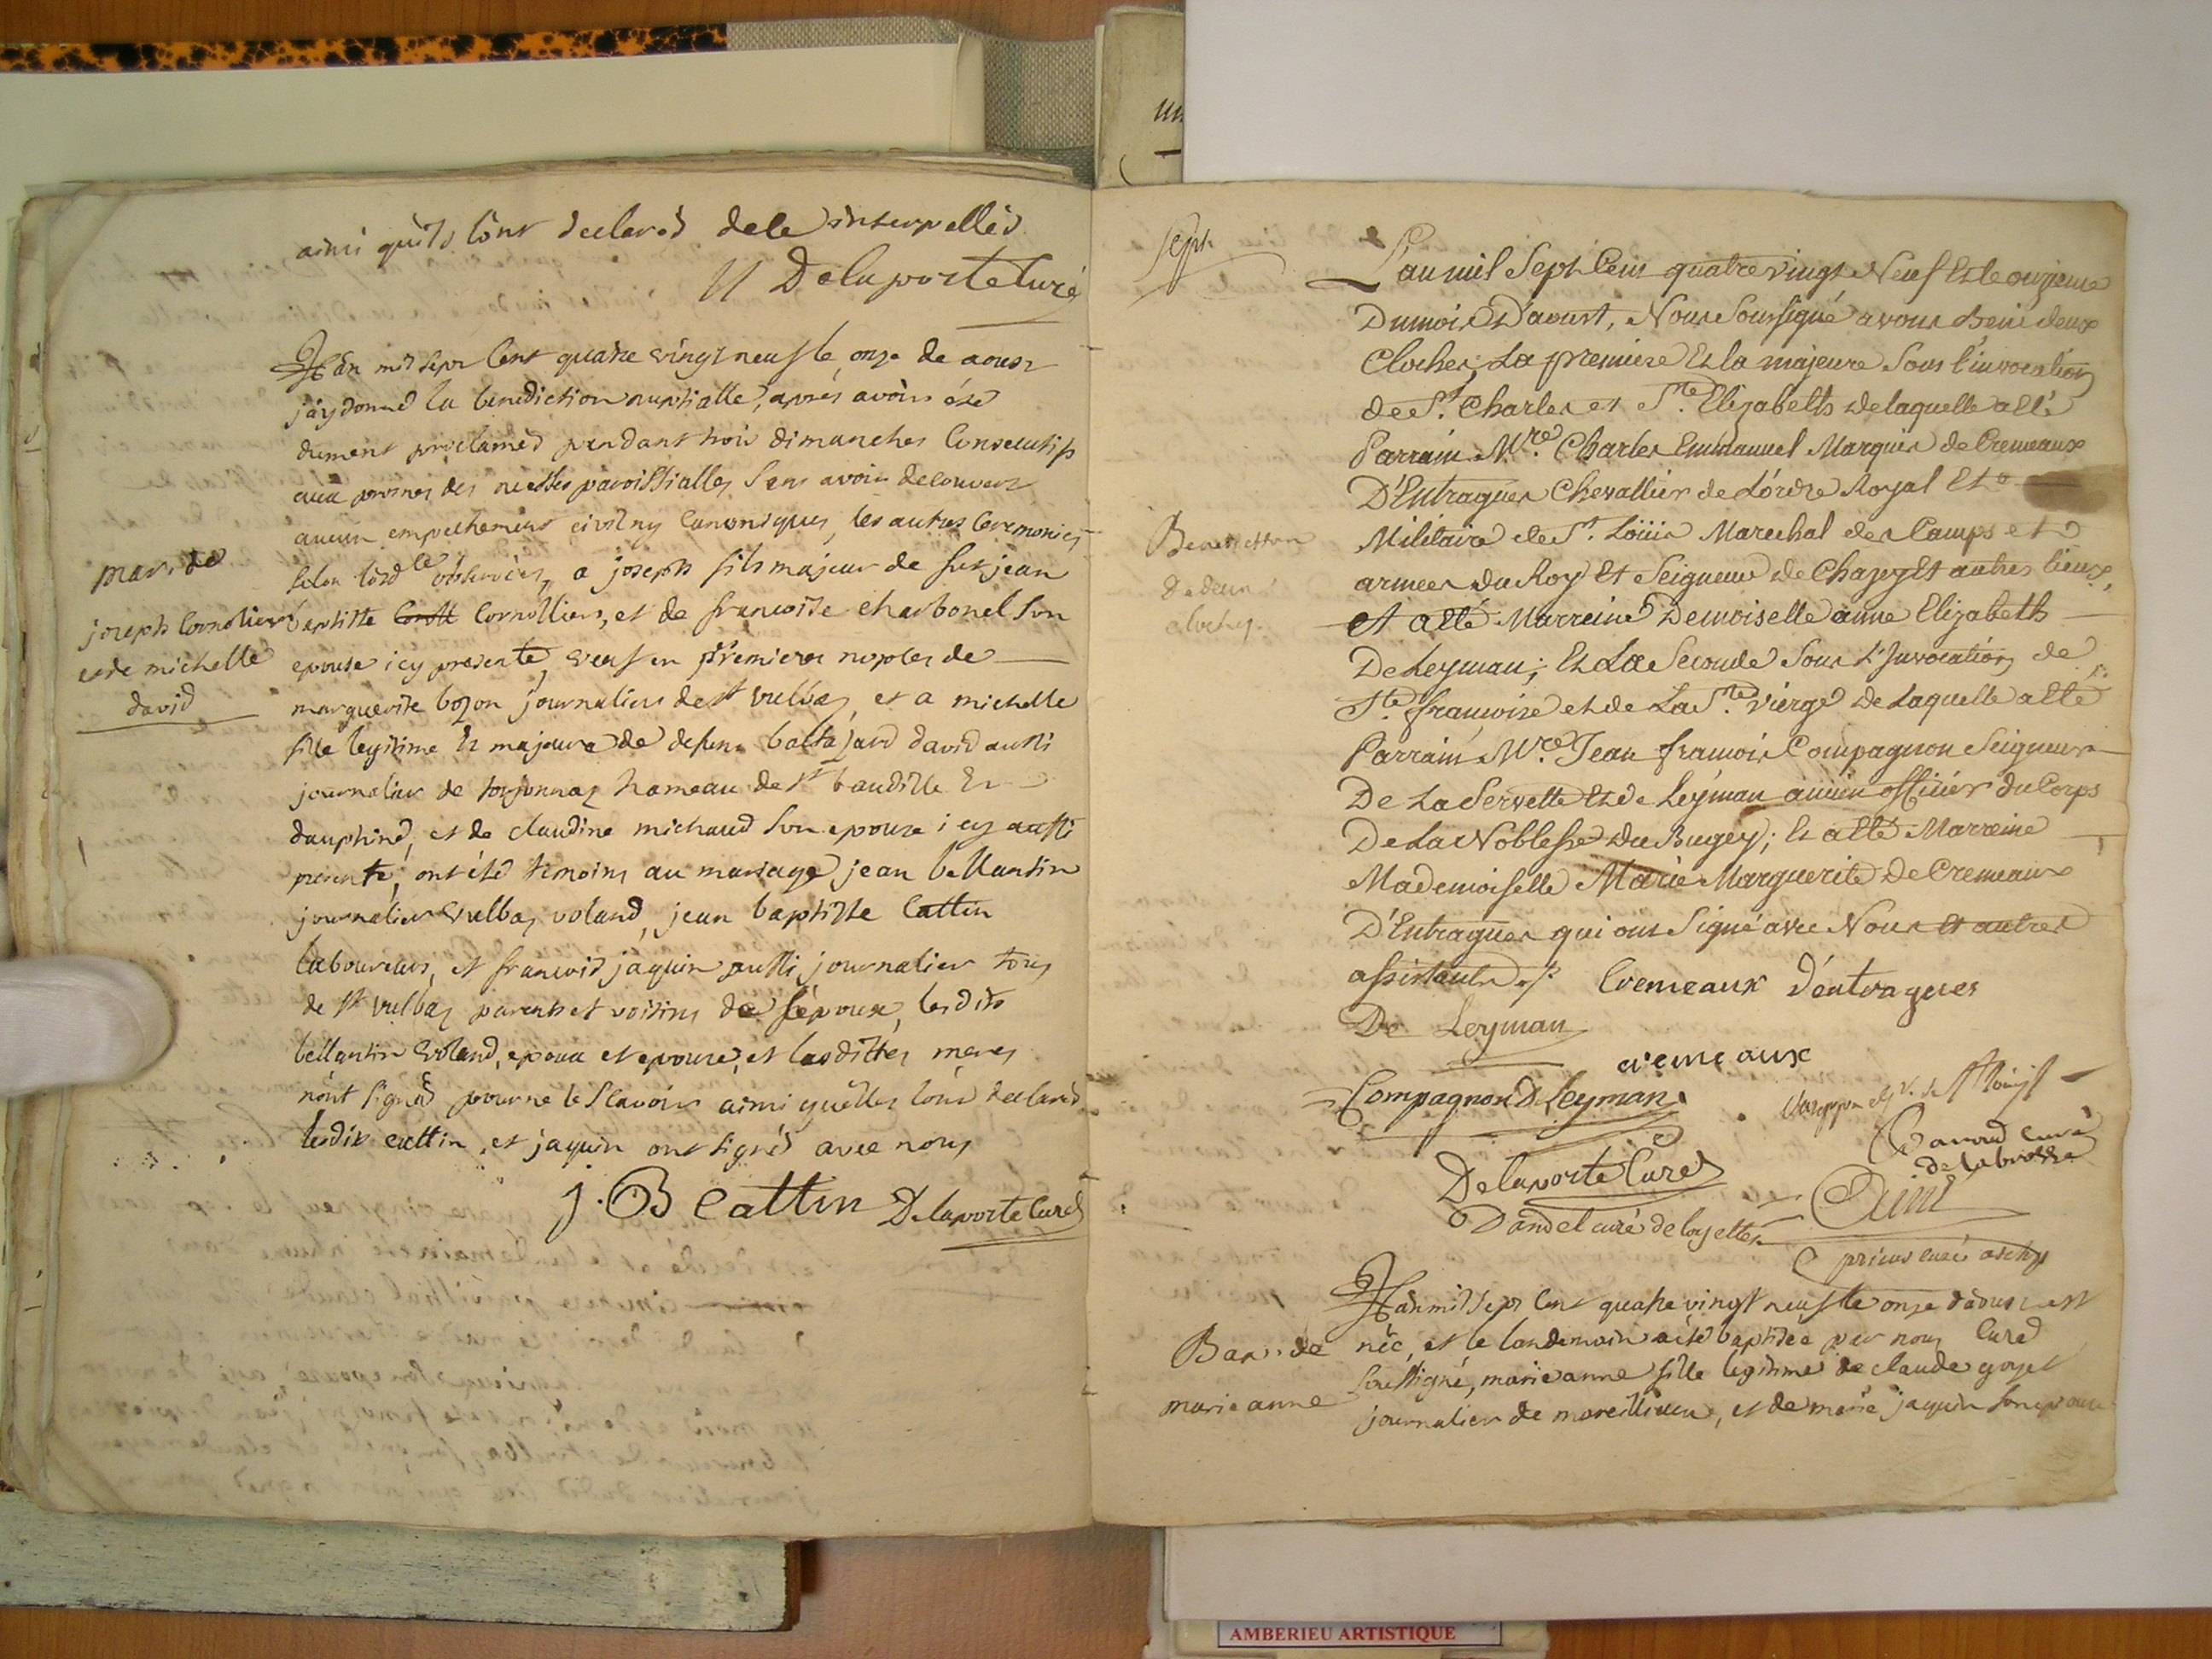 ainsi quils lont declarés de ce interpellés
Delaporte Curé
L'an mil sept cent quatre vingt neuf le onze de aoust
j'ay donné la benediction nuptialle, aprés avoir été
dument proclamés pendant trois dimanches consecutifs
aux prosnes des messes paroissialles sans avoir decouvert
aucun empechement civil ny canonique, les autres ceremonies
selon lord.ce observées, a joseph fils majeur de feu jean
mari. de
joseph Cornollier
et de michelle
david
baptiste Cornollier, et de francoise charbonel son
epouse icy presente, veuf en premieres nopces de
marguerite bozon journalier de st vulbas, et a michelle
fille legitime et majeure de defunt baltazard david aussi
journalier de torjonnas hameau de st baudille En
dauphiné, et de claudine michaud son epouse icy aussi
presente, ont été temoins au mariage jean bellantin
journalier vulbas voland, jean baptiste Cattin
laboureur, et francois jaquin aussi journalier tous
de st vulbas parents et voisins de lépoux, lesdits
bellantin voland, epoux et epouse, et lesdittes meres
n'ont signés pour ne le scavoir ainsi quelles lont declarés
lesdits cattin, et jaquin ont signés avec nous
J. B Cattin Delaporte Curé
Sept.
L'an mil Sept Cens quatre vingt Neuf Et le onzieme
Du mois D'aoust, Nous Soussigné avons Beni deux
Cloches; La premiere Et la majeure Sous l'invocation
de St. Charles et Ste. Elizabeth de laquelle a Eté
Parrain Mre. Charles Emmanuel Marquis de Cremeaux
D'Entragues Chevallier de L'ordre Royal Et
Benediction
de deux
cloches.
Militaire de St. Loüis Marechal des Camps et
armees du Roy Et Seigneur de Chazey Et autres lieux,
et a Eté Marreine Demoiselle anne Elizabeth
De Leyman; Et La Seconde Sous l'Invocation de
Ste. francoise et de La Ste. Vierge De Laquelle a Eté
Parrain Mre. Jean francois Compagnon Seigneur
De La Servette Et de Leyman ancien officier du Corps
De La Noblesse du Bugey; Et a Eté Marreine
Mademoiselle Marie Marguerite De Cremeaux
D'Entragues qui ont Signé avec Nous et autres
assistants ./. Cremeaux d'entragues
De Leyman
cremeaux
Compagnon D Leyman
Delaporte Curé
curé
de la brosse
Dandel curé de loyettes
curé
L'an mil sept cent quatre vingt neuf le onze d'aoust est
Bap. de
marie anne
née, et le landemain a été baptisée par nous Curé
soussigné, marie anne fille legitime de claude goyet
journalier de marcillieux, et de marie jaquin son epouse
AMBERIEU ARTISTIQUE